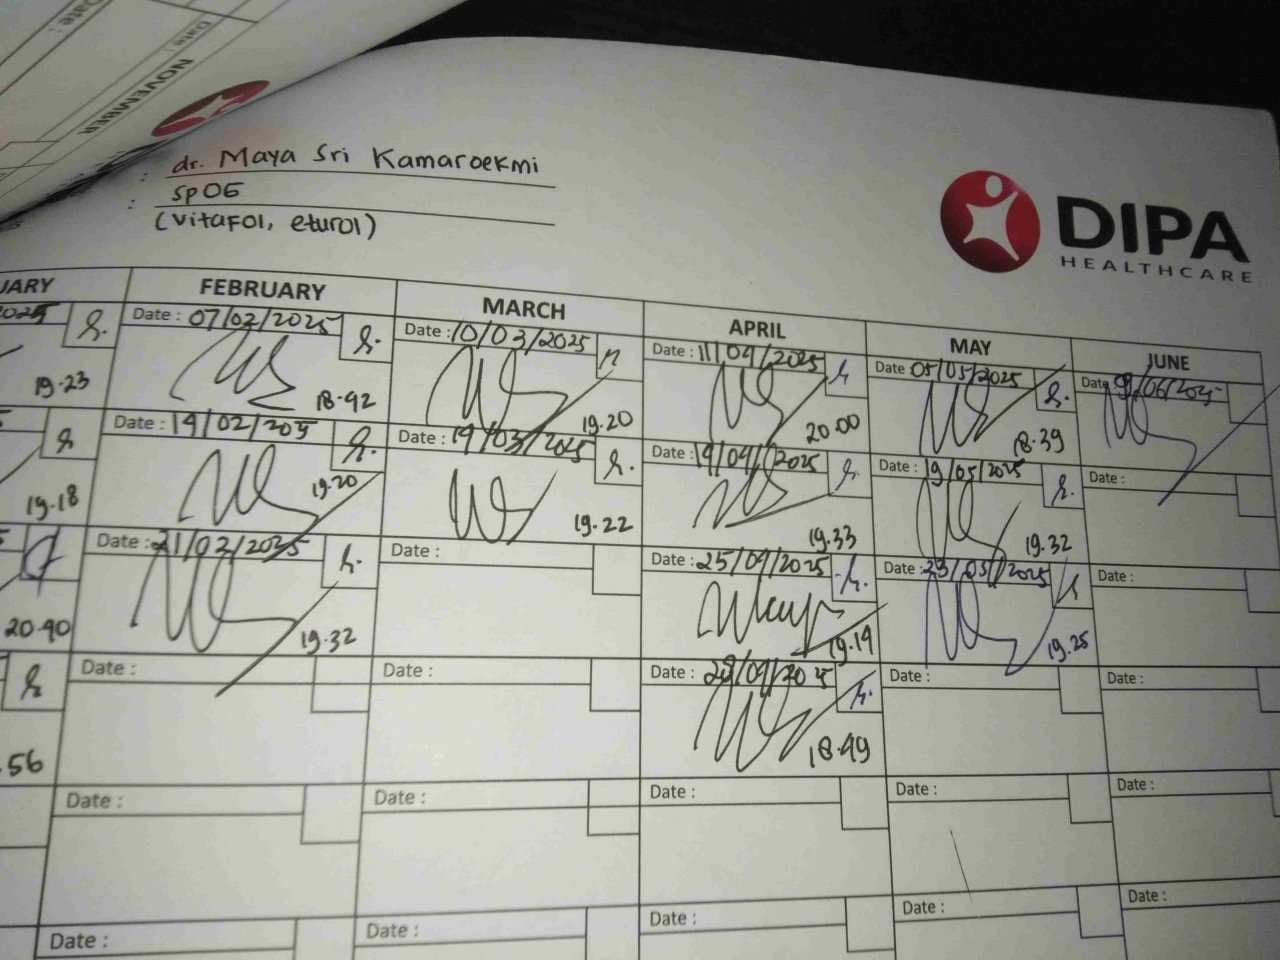 Date :
Date :
NOVEMBER
: dr. Maya Sri Kamaroekmi
: SpOG
(Vitafol, eturol)
DIPA
HEALTHCARE
UARY FEBRUARY MARCH APRIL MAY JUNE
2025 Date : 07/02/2025 Date : 10/03/2025 Date : 11/04/2025 Date 05/05/2025 Date 9/06/2025
19.23 18.42 19.20 20.00 18.39
Date : 14/02/2025 Date : 19/03/2025 Date : 14/04/2025 Date : 19/05/2025 Date :
19.18 19.20 19.22 19.33 19.32
Date : 21/02/2025 Date : Date : 25/04/2025 Date : 23/05/2025 Date :
20.40 19.32 19.14 19.25
Date : Date : Date : 28/04/2025 Date : Date :
.56 18.49
Date : Date : Date : Date : Date :
Date : Date : Date : Date : Date :